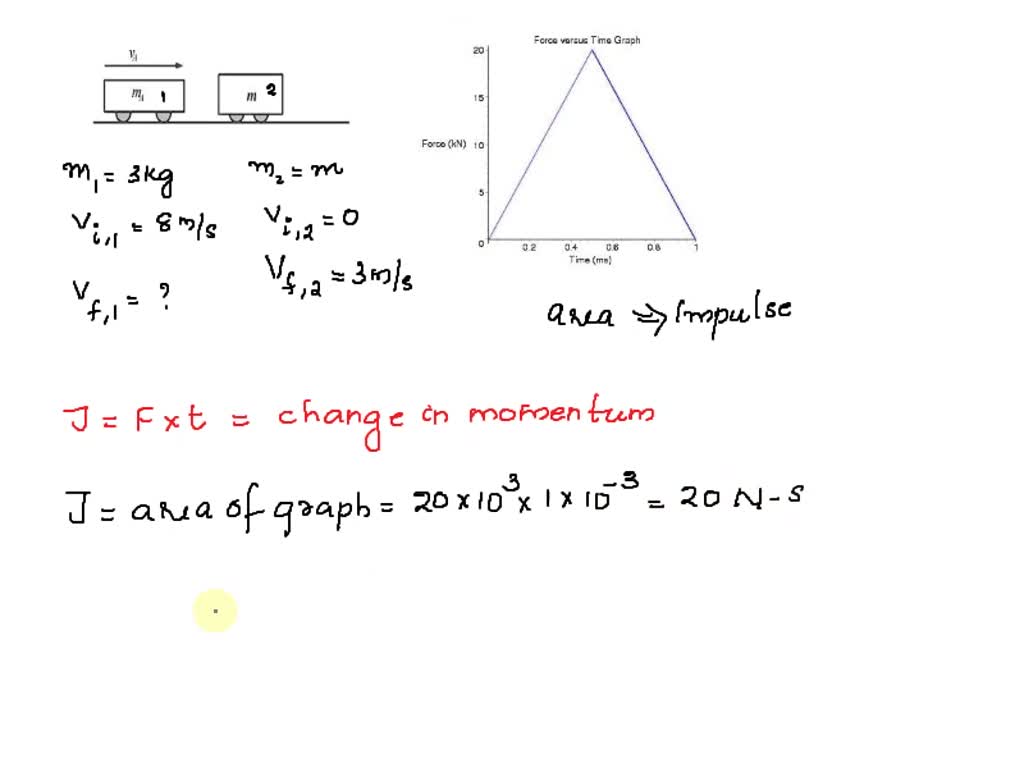 v₁
m₁ 1
m 2
m₁ = 3kg
m₂ = m
V i,1 = 8 m/s
V i,2 = 0
V f,1 = ?
V f,2 = 3 m/s
Force versus Time Graph
20
15
Force (kN) 10
5
0
0.2 0.4 0.6 0.8 1
Time (ms)
area ⇒ Impulse
J = F × t = change in momentum
J = area of graph = 20 × 10³ × 1 × 10⁻³ = 20 N-s